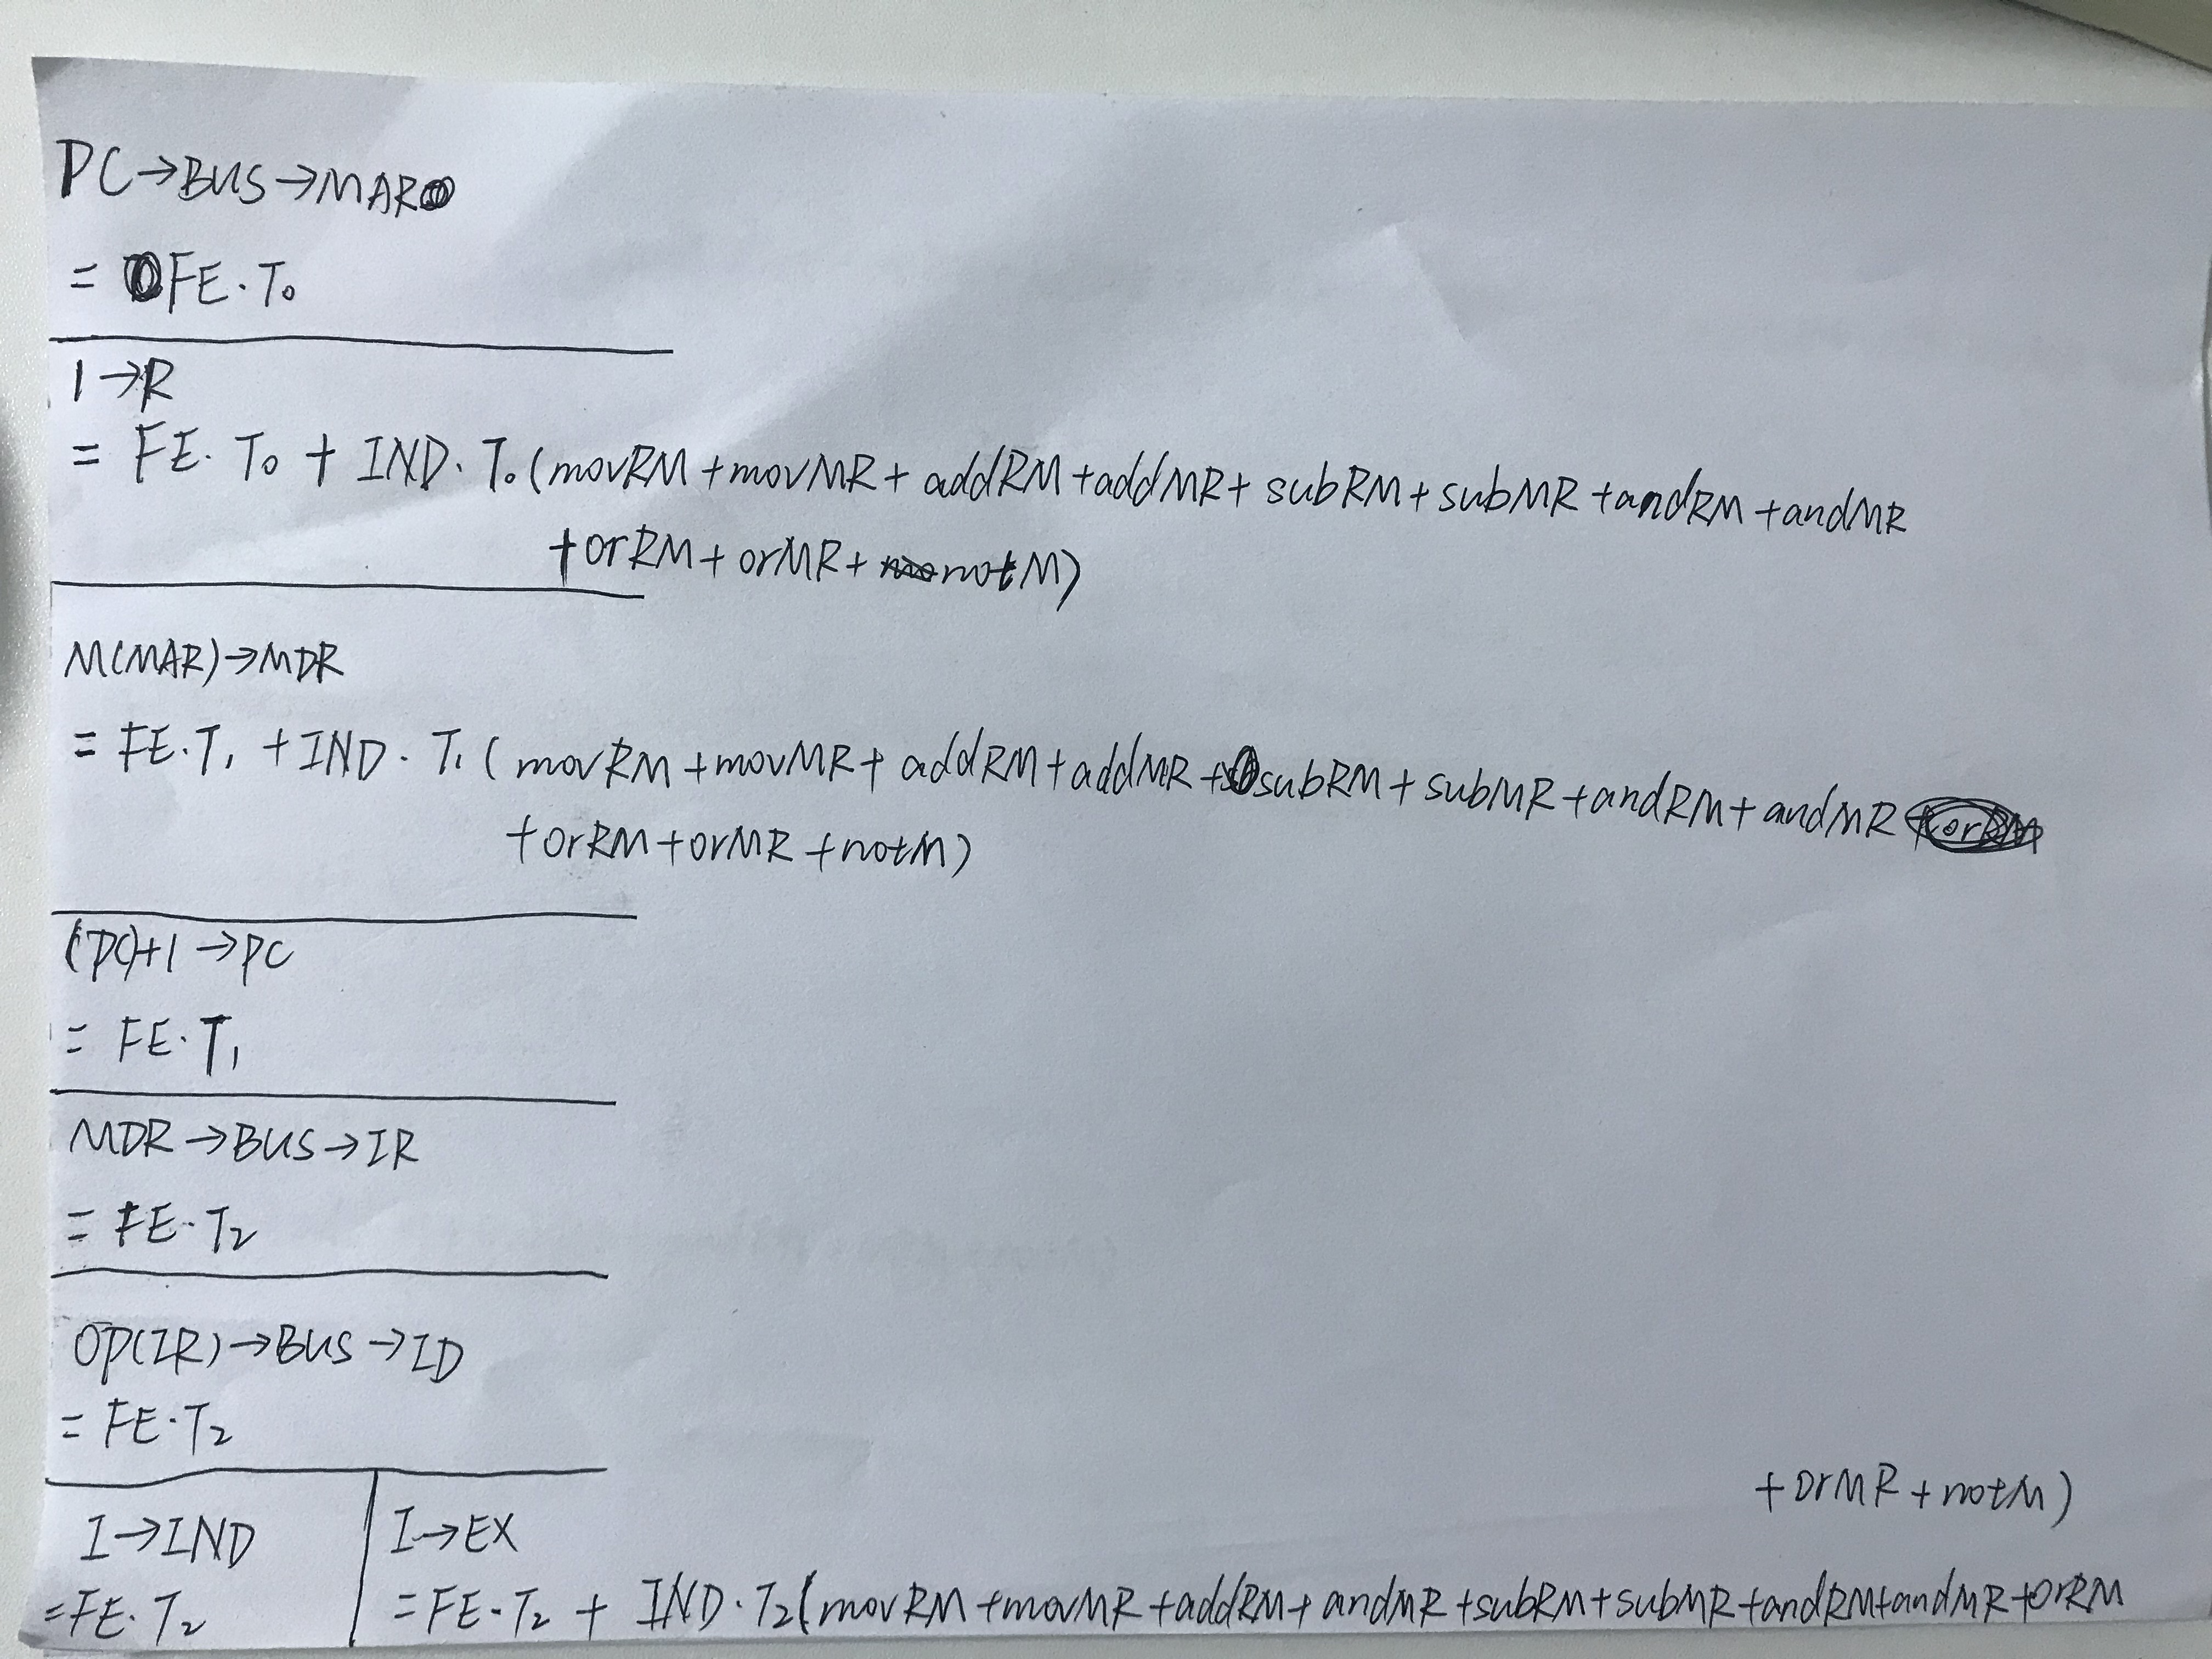 PC→BUS→MAR
= FE·T₀
1→R
= FE·T₀ + IND·T₀(movRM+movMR+addRM+addMR+subRM+subMR+andRM+andMR
+orRM+orMR+notM)
M(MAR)→MDR
= FE·T₁+IND·T₁(movRM+movMR+addRM+addMR+subRM+subMR+andRM+andMR
+orRM+orMR+notM)
(PC)+1→PC
= FE·T₁
MDR→BUS→IR
= FE·T₂
OP(IR)→BUS→ID
= FE·T₂
I→IND
=FE·T₂
I→EX
=FE·T₂ + IND·T₂(movRM+movMR+addRM+andMR+subRM+subMR+andRM+andMR+orRM
+orMR+notM)